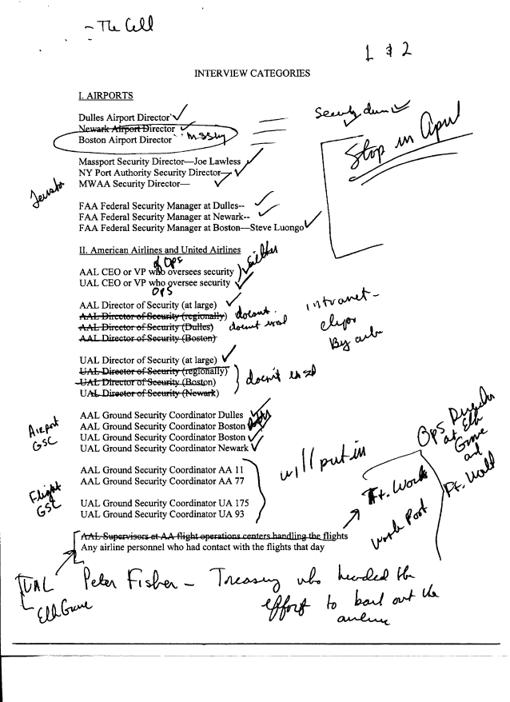 - The Cell
1 & 2
INTERVIEW CATEGORIES
I. AIRPORTS
Dulles Airport Director
Newark Airport Director
Boston Airport Director
Security
Stop in April
Massport Security Director—Joe Lawless
NY Port Authority Security Director—
MWAA Security Director—
FAA Federal Security Manager at Dulles--
FAA Federal Security Manager at Newark--
FAA Federal Security Manager at Boston—Steve Luongo
II. American Airlines and United Airlines
of Ops
AAL CEO or VP who oversees security
UAL CEO or VP who oversee security
OPS
AAL Director of Security (at large)
AAL Director of Security (regionally) doesnt
AAL Director of Security (Dulles) doesnt exist
AAL Director of Security (Boston)
intranet-
By
UAL Director of Security (at large)
UAL Director of Security (regionally)
UAL Director of Security (Boston) doesn't exist
UAL Director of Security (Newark)
Airport GSC
AAL Ground Security Coordinator Dulles
AAL Ground Security Coordinator Boston
UAL Ground Security Coordinator Boston
UAL Ground Security Coordinator Newark
Flight GSC
AAL Ground Security Coordinator AA 11
AAL Ground Security Coordinator AA 77
UAL Ground Security Coordinator UA 175
UAL Ground Security Coordinator UA 93
will put in
Ft. Worth
Ops Director
at Elk
Grove
and
Ft. Worth
AAL Supervisors at AA flight operations centers handling the flights
Any airline personnel who had contact with the flights that day
UAL
Elk Grove
Peter Fisher - Treasury who headed the
effort to bail out the
airline